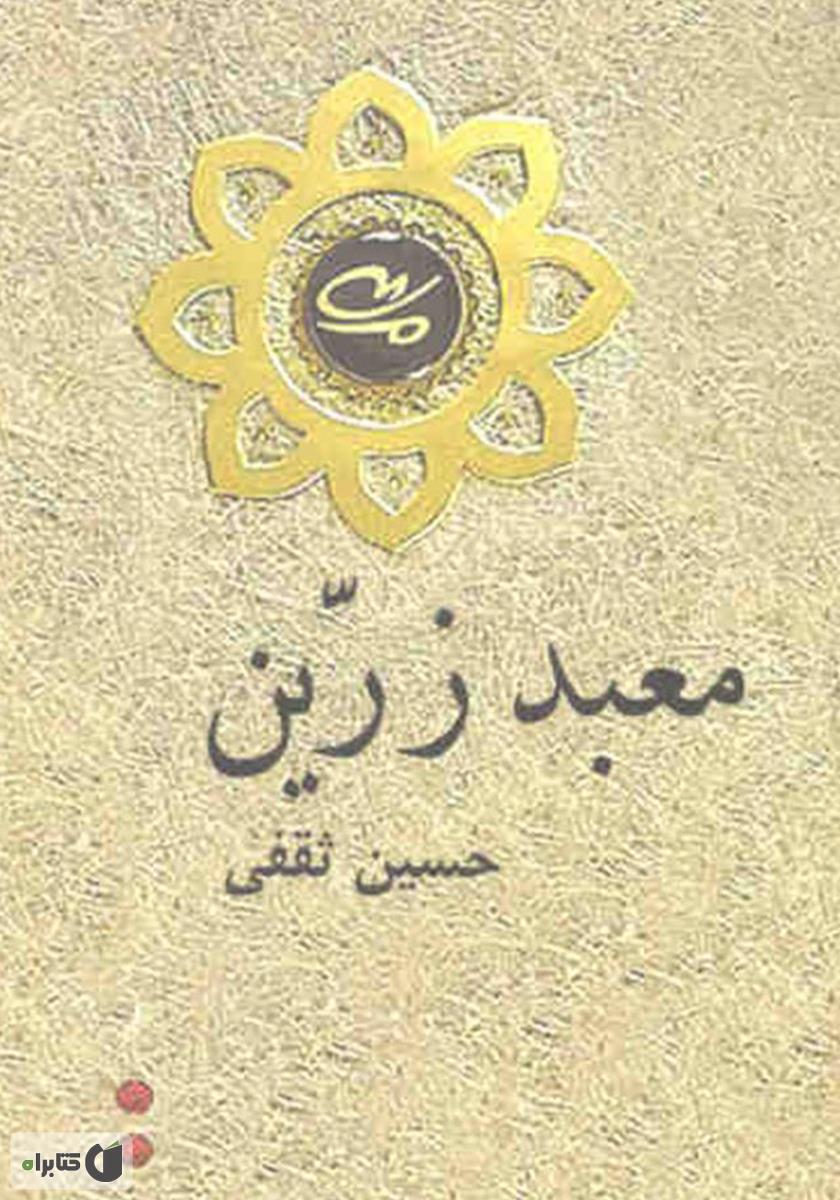 معبد زرّین
حسین ثقفی
کتابراه